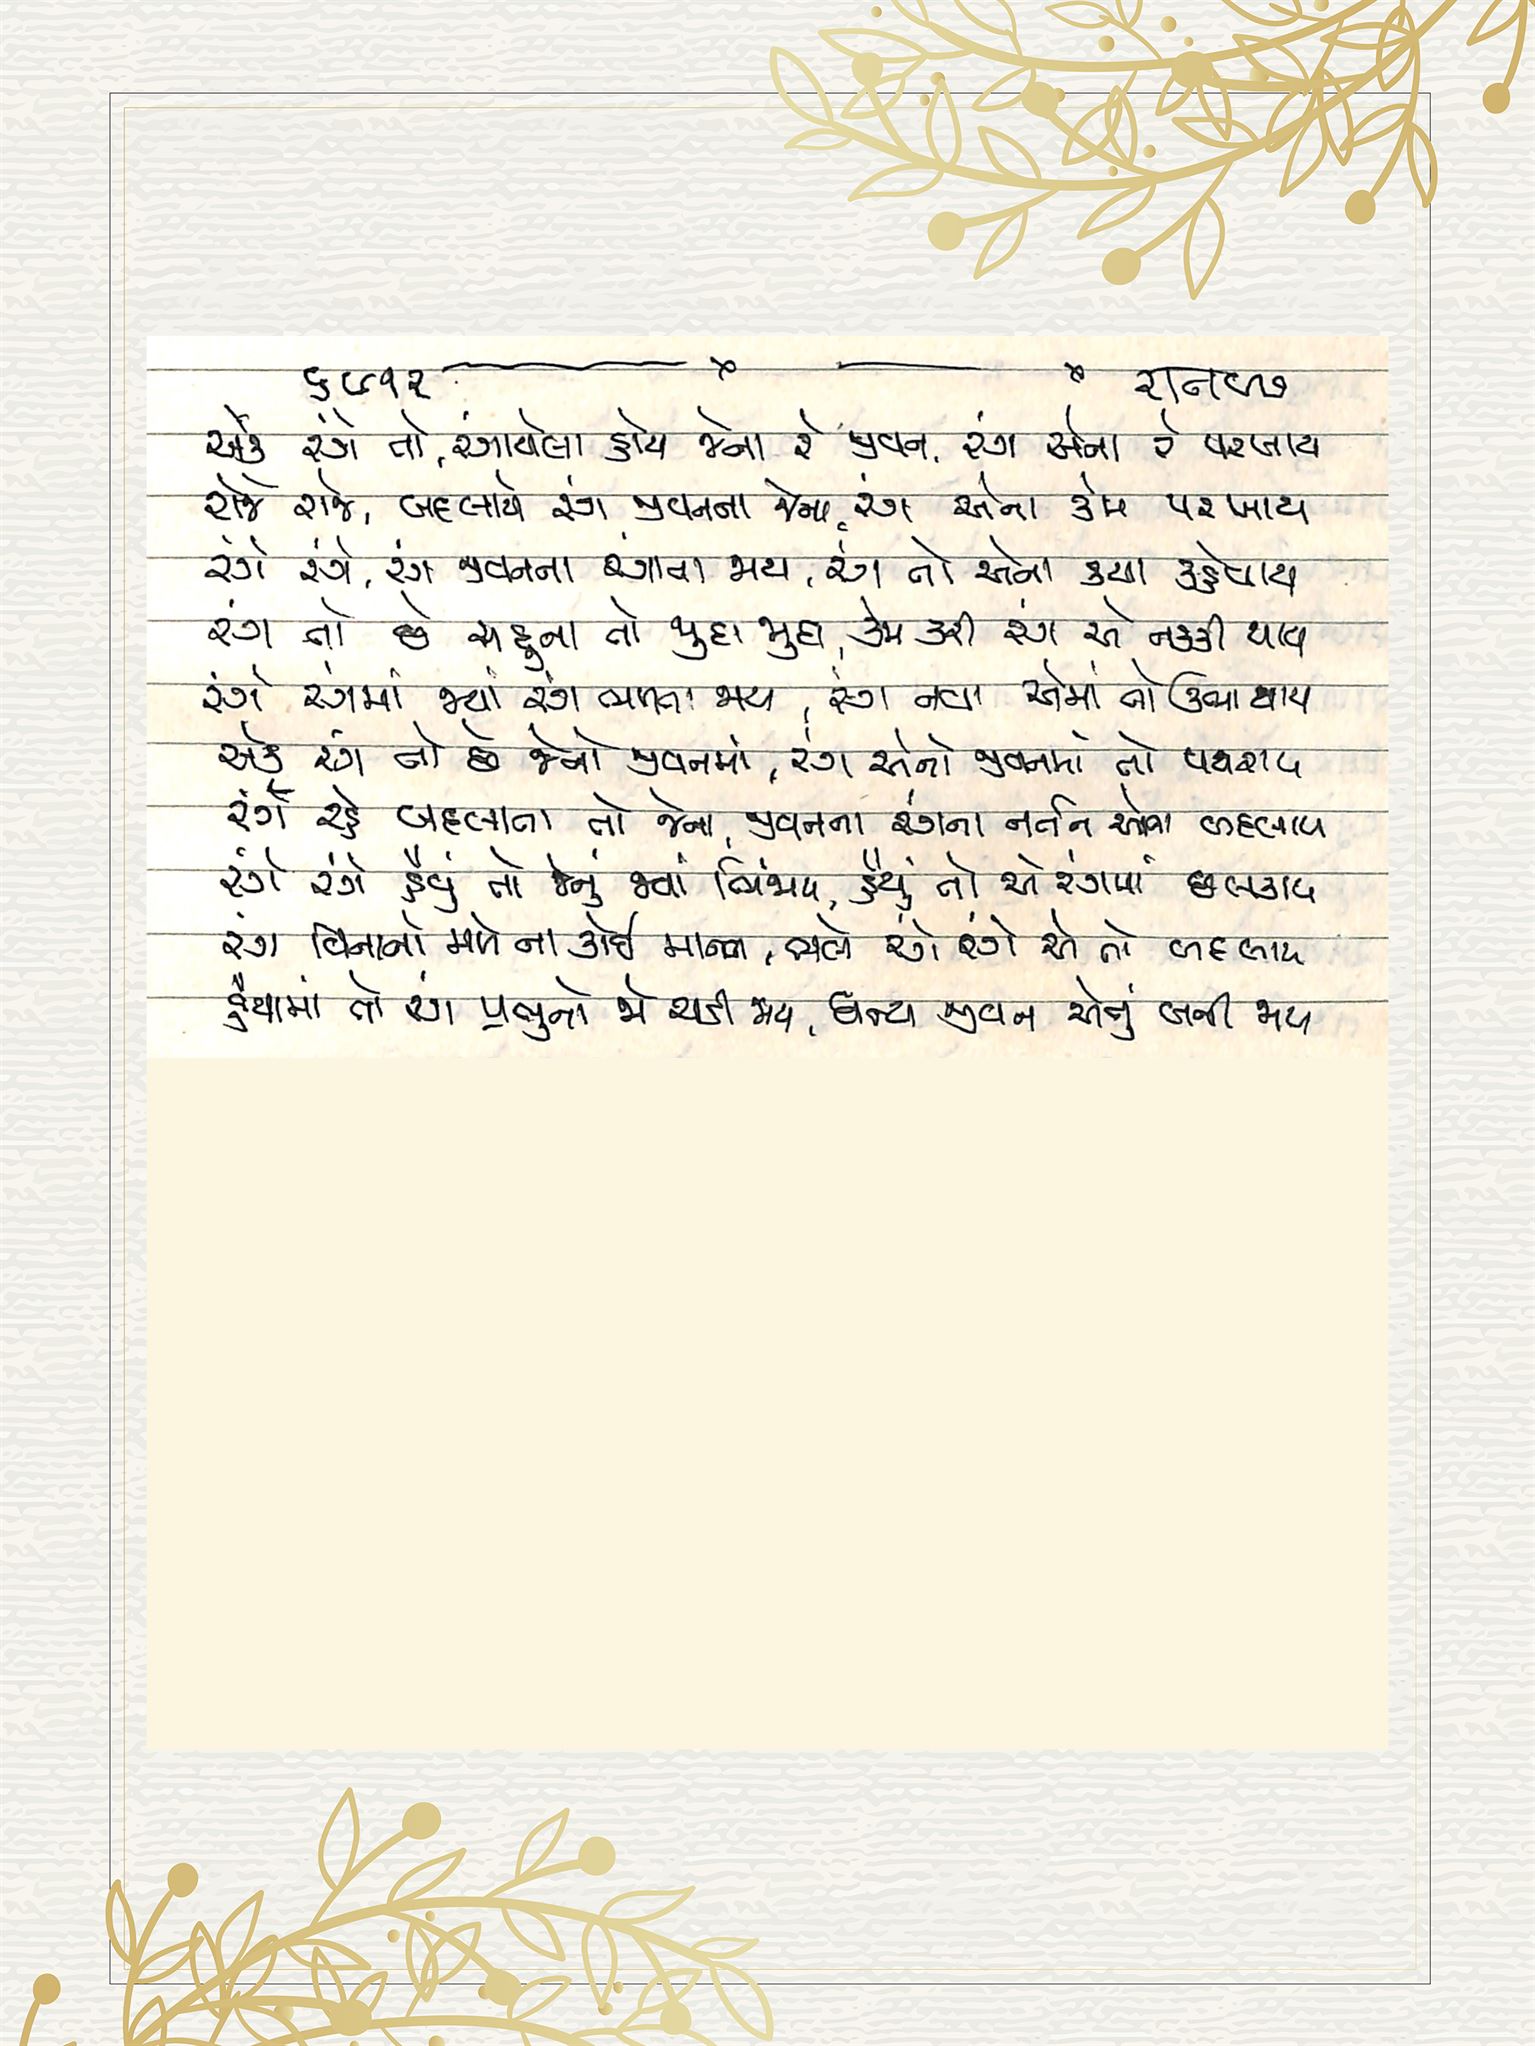 ૬૭૧૨ × × રાનવ્છ
એક રંગે તો, રંગાયેલા હોય જેના રે જીવન, રંગ એના રે પરખાય
રોજે રોજે, બદલાયે રંગ જીવનના જેના, રંગ એના કેમ પરખાય
રંગે રંગે, રંગ જીવનના રંગાતા જાય, રંગ તો એના કયા કહેવાય
રંગ તો છે સહુના તો જુદા જુદા, કેમ કરી રંગ એ નક્કી થાય
રંગે રંગમાં જ્યાં રંગ મળતા જાય, રંગ નવા એમાં તો ઊભા થાય
એક રંગ તો છે જેનો જીવનમાં, રંગ એનો જીવનમાં તો પથરાય
રંગે રહે બદલાતા તો જેના, જીવનના રંગના નર્તન એવા બદલાય
રંગે રંગે હૈયું તો જેનું જ્યાં ભિંજાય, હૈયું તો એ રંગમાં છલકાય
રંગ વિનાનો મળે ના કોઈ માનવ, ભલે રંગે રંગે એ તો બદલાય
હૈયામાં તો રંગ પ્રભુનો જો ચડી જાય, ધન્ય જીવન એનું બની જાય